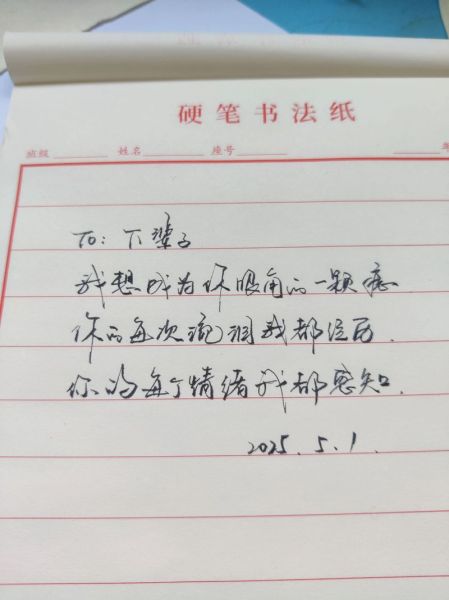 硬笔书法纸
班级 姓名 座号
To: 下辈子
我想成为你眼角的一颗痣
你的每次流泪我都经历.
你的每个情绪我都感知.
2025.5.1.